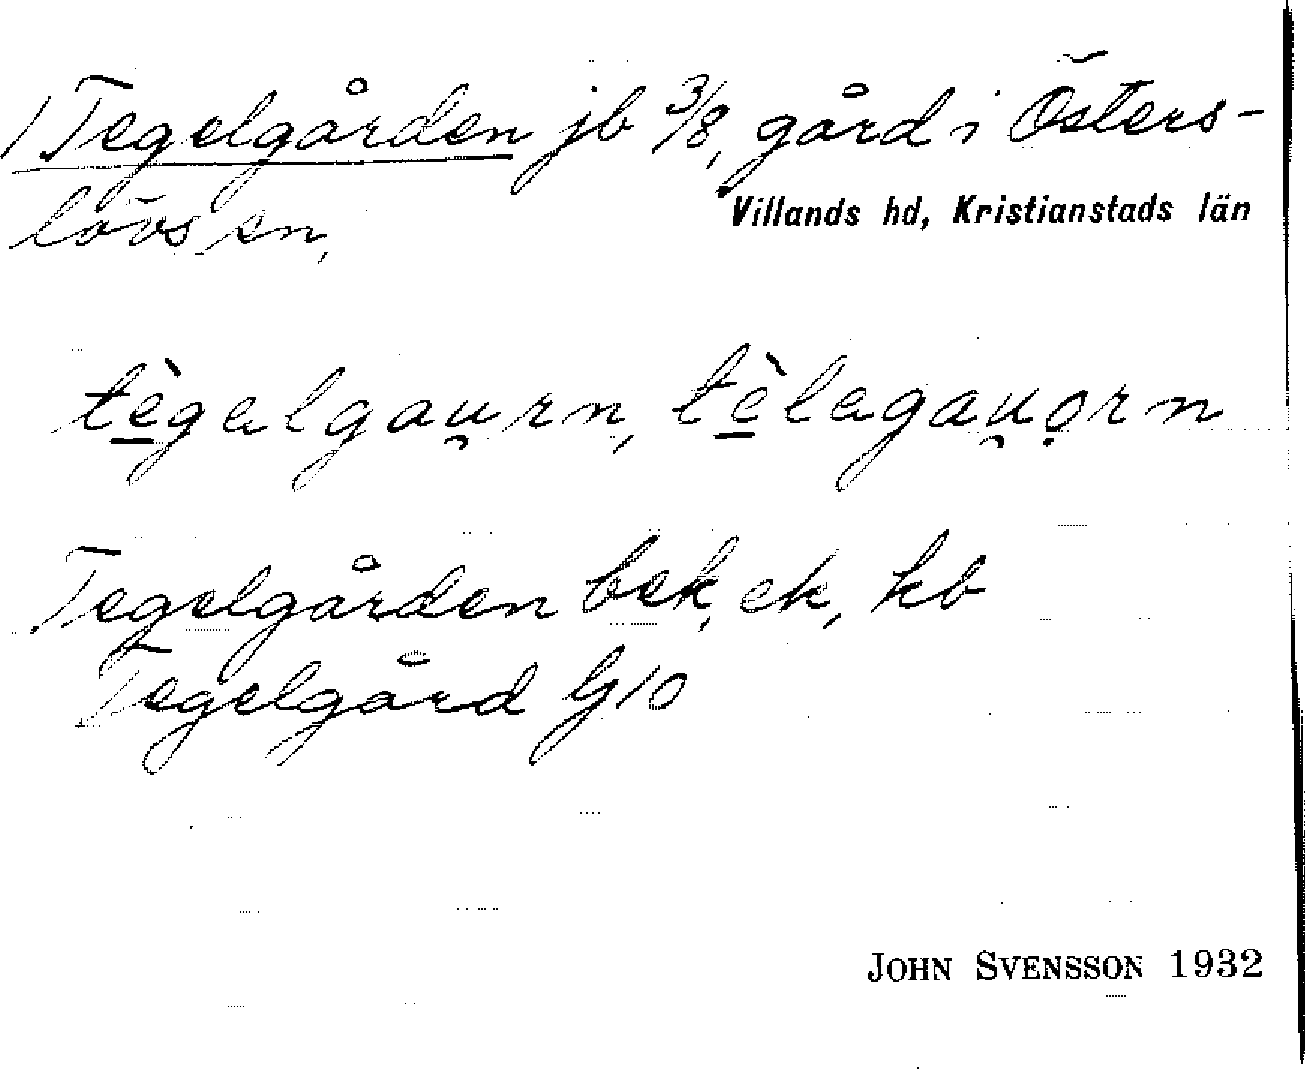 1 Tegelgården jb 3/8, gård i Östers-
lövs sn,
Villands hd, Kristianstads län
tègəlgau̯rn, tèləgau̯ọrn
Tegelgården bek, ek, kb
Tegelgård G10
JOHN SVENSSON 1932